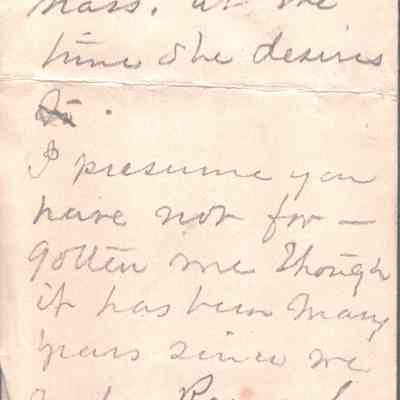 Mass. at the
time she desires
to.
I presume you
have not for-
gotten me though
it has been many
years since we